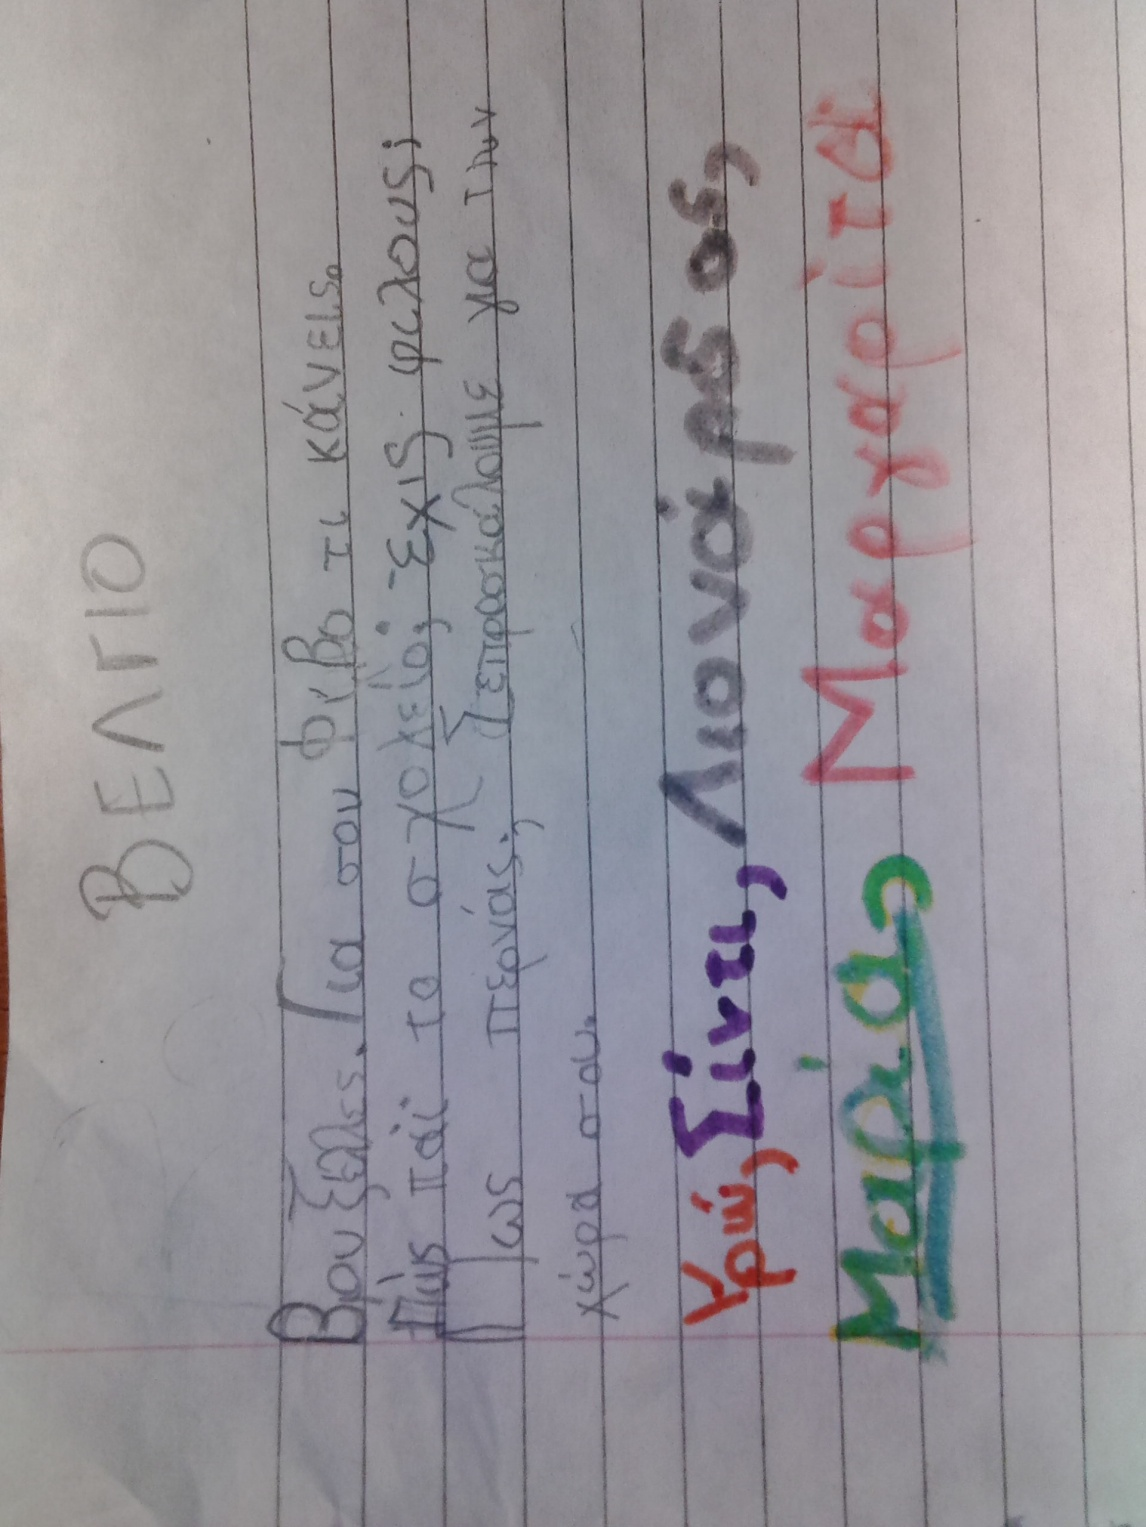 ΒΕΛΓΙΟ
Βουξέλλες. Γεια σου φίβο τι κάνεις.
Πώς πάϊ το σχολείο; Έχις φιλους;
Πως περνάς; Σεπροσκάλουμε για την
χώρα σου.
Υρώ, Σίντι, Λιονάρδος,
Μαρία, Μαργαρίτα